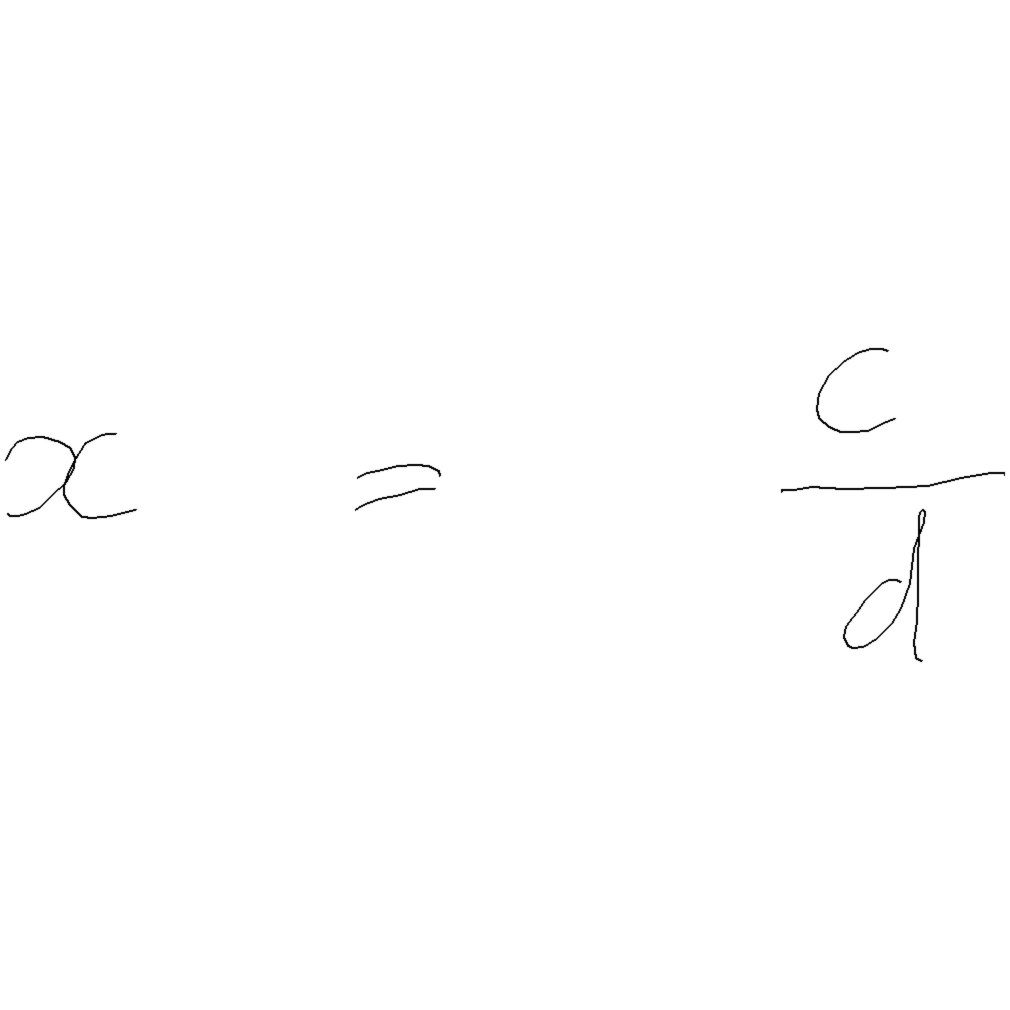 x = \frac{c}{d}